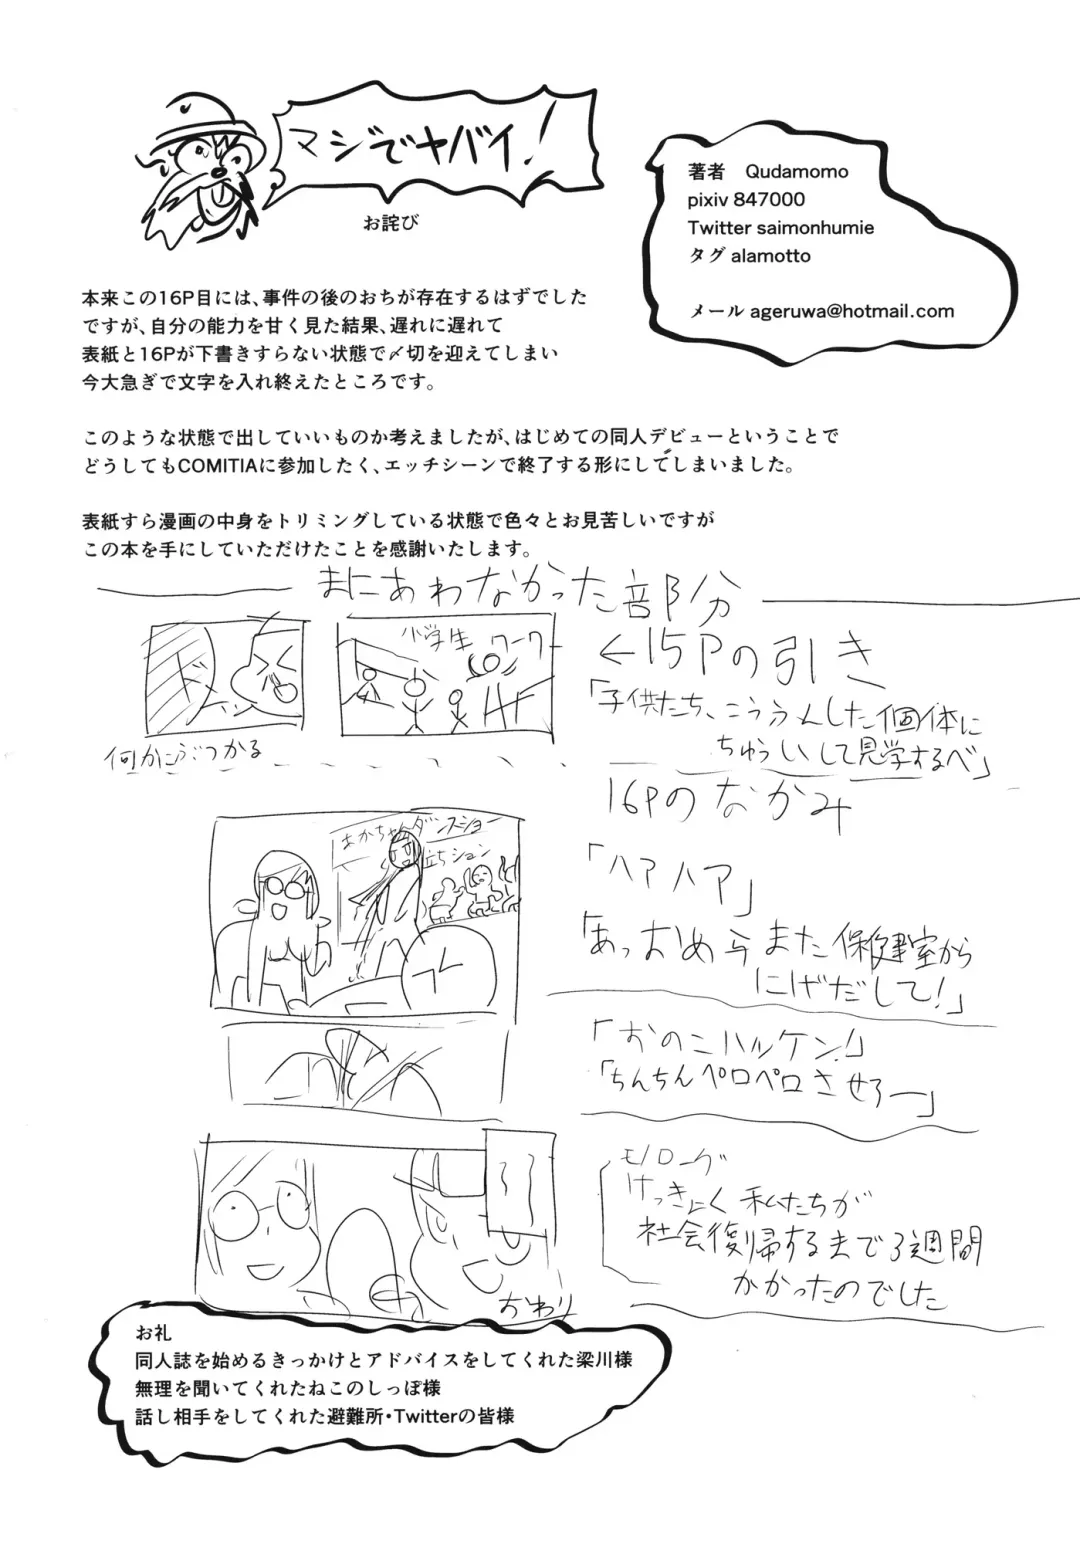 マジでヤバイ！
お詫び
著者　Qudamomo
pixiv 847000
Twitter saimonhumie
タグ alamotto
メール ageruwa@hotmail.com
本来この16P目には、事件の後のおちが存在するはずでした
ですが、自分の能力を甘く見た結果、遅れに遅れて
表紙と16Pが下書きすらない状態で〆切を迎えてしまい
今大急ぎで文字を入れ終えたところです。
このような状態で出していいものか考えましたが、はじめての同人デビューということで
どうしてもCOMITIAに参加したく、エッチシーンで終了する形にしてしまいました。
表紙すら漫画の中身をトリミングしている状態で色々とお見苦しいですが
この本を手にしていただけたことを感謝いたします。
まにあわなかった部分
ドン
小学生 ワーワー
何かにぶつかる
←15Pの引き
「子供たち、こうふんした個体に
ちゅういして見学するべ」
16Pのなかみ
あかちゃんダンスショー
立ちション
「ハアハア」
「あっおめえらまた保健室から
にげだして！」
「おのこハルケン！」
「ちんちんペロペロさせろー」
モノローグ
けっきょく私たちが
社会復帰するまで3週間
かかったのでした
おわり
お礼
同人誌を始めるきっかけとアドバイスをしてくれた梁川様
無理を聞いてくれたねこのしっぽ様
話し相手をしてくれた避難所・Twitterの皆様